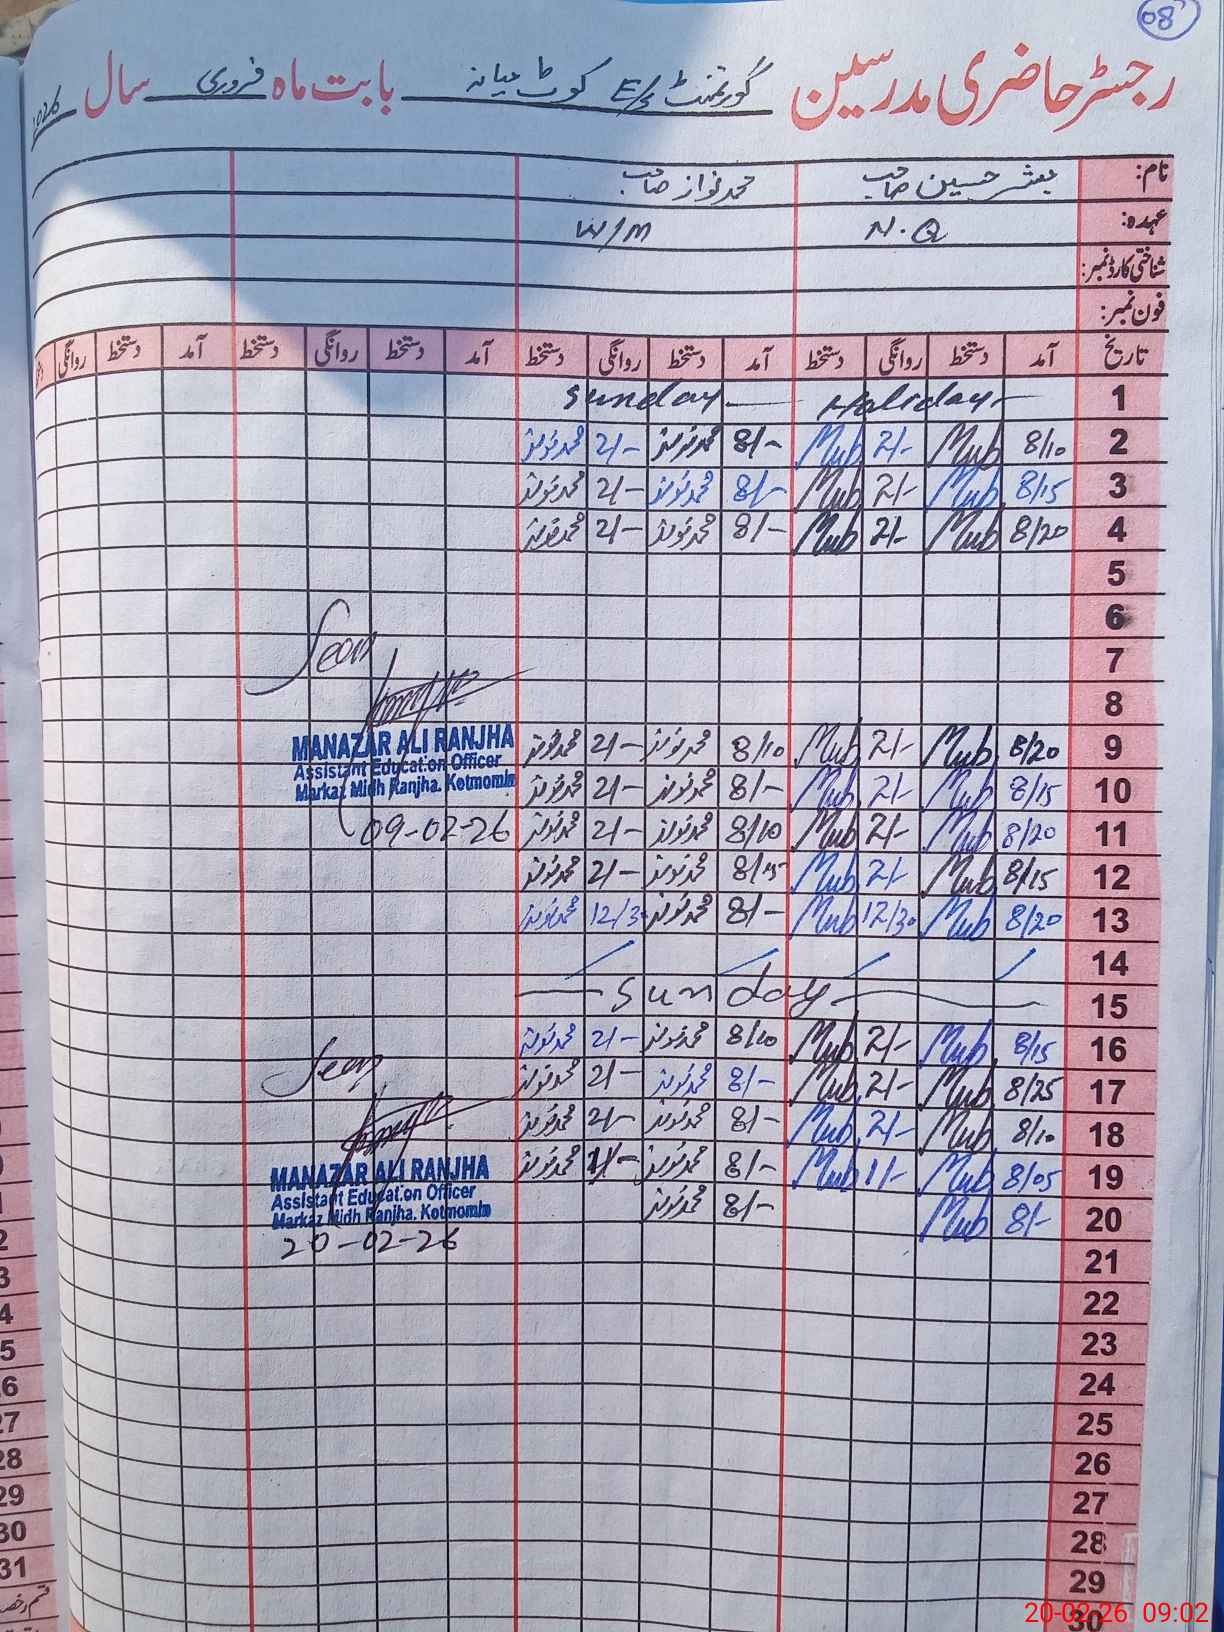 08
رجسٹر حاضری مدرسین گورنمنٹ E/S کوٹ میانہ بابت ماہ فروری سال 2026
نام: مبشر حسین صاحب محمد نواز صاحب
عہدہ: N.Q W/M
شناختی کارڈ نمبر:
فون نمبر:
تاریخ آمد دستخط روانگی دستخط آمد دستخط روانگی دستخط آمد دستخط روانگی دستخط آمد دستخط روانگی
1 Sunday — Holiday —
2 8/10 Mub 2/- Mub 8/- محمد نواز 2/- محمد نواز
3 8/15 Mub 2/- Mub 8/- محمد نواز 2/- محمد نواز
4 8/20 Mub 2/- Mub 8/- محمد نواز 2/- محمد نواز
5
6
7
8
9 8/20 Mub 2/- Mub 8/10 محمد نواز 2/- محمد نواز
10 8/15 Mub 2/- Mub 8/- محمد نواز 2/- محمد نواز
11 8/20 Mub 2/- Mub 8/10 محمد نواز 2/- محمد نواز
12 8/15 Mub 2/- Mub 8/15 محمد نواز 2/- محمد نواز
13 8/20 Mub 12/30 Mub 8/- محمد نواز 12/30 محمد نواز
14
15 — Sunday —
16 8/15 Mub 2/- Mub 8/10 محمد نواز 2/- محمد نواز
17 8/25 Mub 2/- Mub 8/- محمد نواز 2/- محمد نواز
18 8/10 Mub 2/- Mub 8/- محمد نواز 2/- محمد نواز
19 8/05 Mub 1/- Mub 8/- محمد نواز 1/- محمد نواز
20 8/- Mub 8/- محمد نواز
21
22
23
24
25
26
27
28
29
30
Seen
MANAZAR ALI RANJHA
Assistant Education Officer
Markaz Midh Ranjha. Kotmomin
09-02-26
Seen
MANAZAR ALI RANJHA
Assistant Education Officer
Markaz Midh Ranjha. Kotmomin
20-02-26
28
29
30
31
20-02-26 09:02